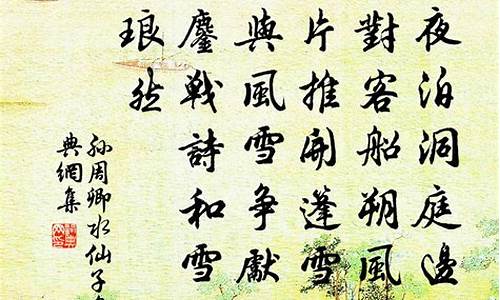 夜泊洞庭邊
對客船朔風
片推開蓬雪
與風雪爭獻
鏖戰詩和雪
琅然
孙周卿水仙子
典網集